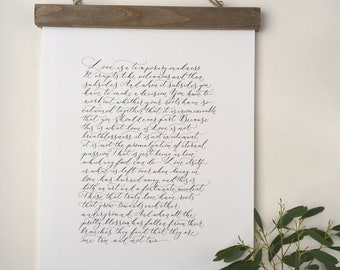 Love is a temporary madness
It erupts like volcanoes and then
subsides. And when it subsides you
have to make a decision. You have to
work out whether your roots have so
entwined together that it is inconceivable
that you should ever part. Because
this is what love is. Love is not
breathlessness it is not excitement
it is not the promulgation of eternal
passion. That is just being in love
which any fool can do. Love itself
is what is left over when being in
love has burned away and this is
both an art and a fortunate accident
Those that truly love have roots
that grow towards each other
underground And when all the
pretty blossom has fallen from their
branches they find that they are
one tree and not two